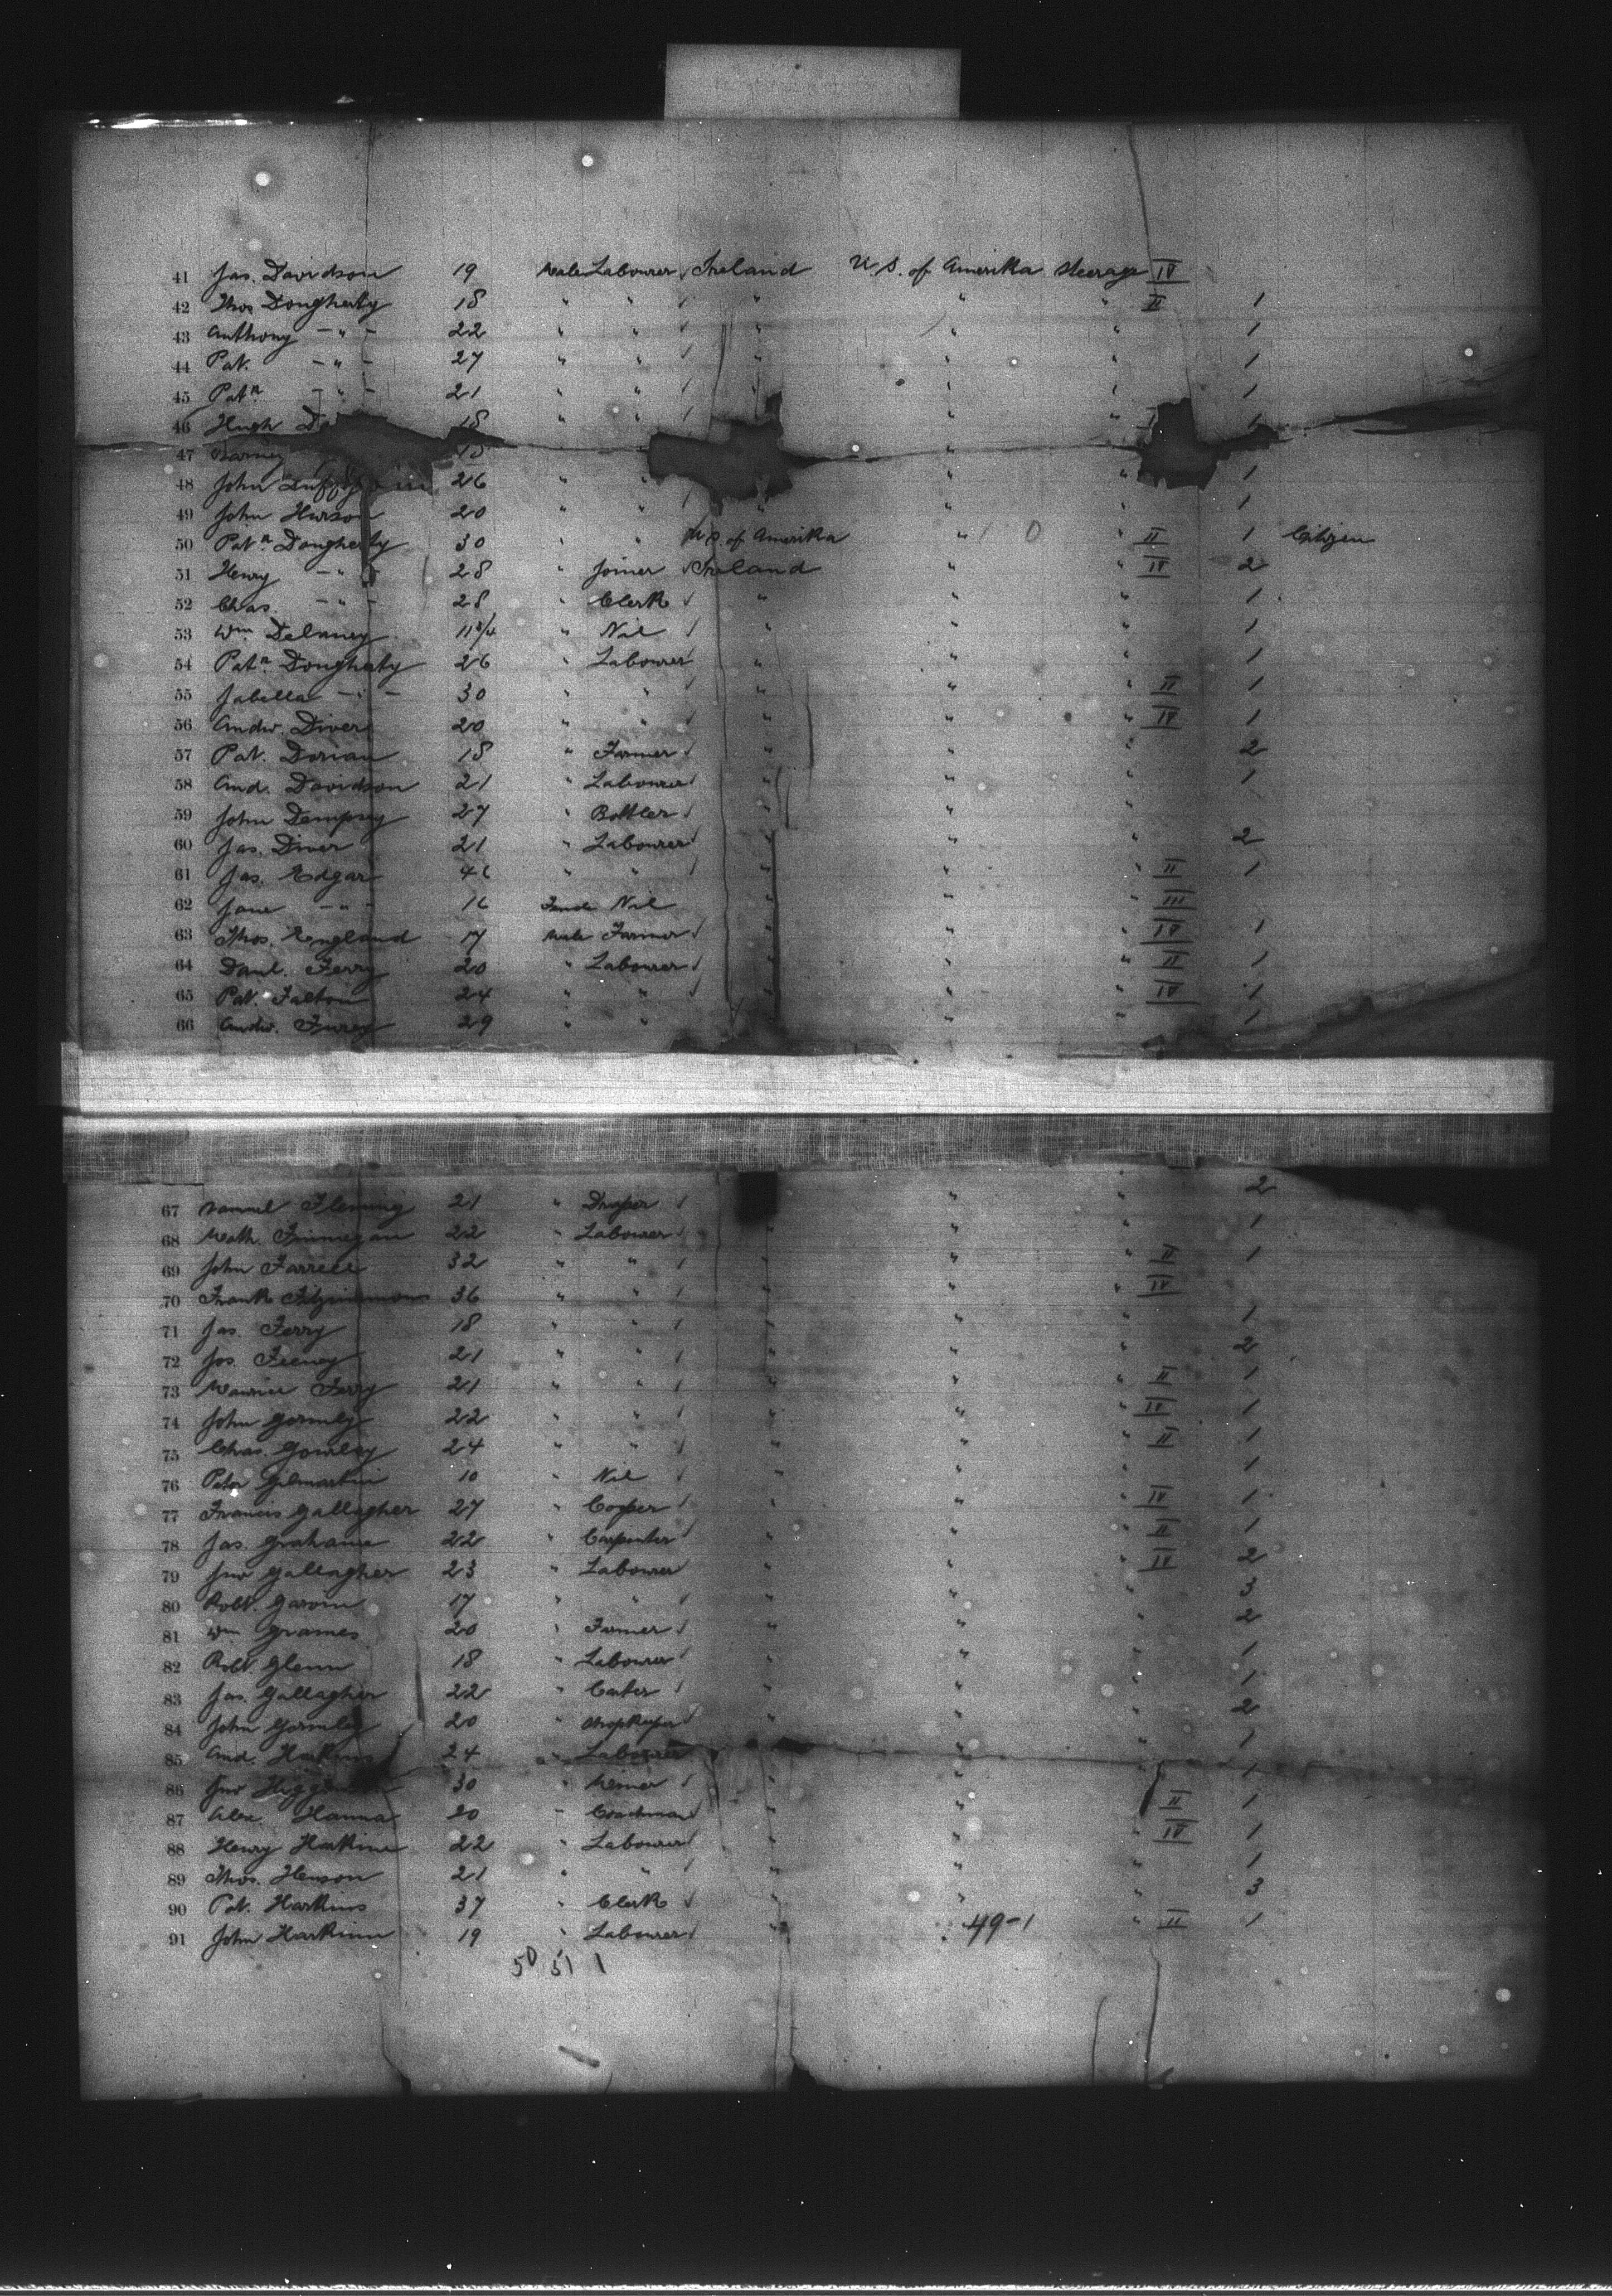 41 Jas. Davidson 19 Male Labourer Ireland U.S. of Amerika Steerage IV
42 Thos Dougherty 18 " " " " " II 1
43 Anthony -"- 22 " " " " " 1
44 Pat. -"- 27 " " " " " 1
45 Patk -"- 21 " " " " " 1
46 Hugh 18 " " " 1
47 Barney 18 "
48 John 26 " " " 1
49 John Hurson 20 " " " 1
50 Patk Dougherty 30 " " U.S. of Amerika " " II 1 Citizen
51 Henry -"- 28 " Joiner Ireland " " IV 2
52 Chas. -"- 28 " Clerk " " " 1
53 Wm Delaney 11 3/4 " Nil " " " 1
54 Patk Dougherty 26 " Labourer " " " 1
55 Jabella -"- 30 " " " " " II 1
56 Andw. Diver 20 " " " " " IV 1
57 Pat. Dorian 18 " Farmer " " " 2
58 And. Davidson 21 " Labourer " " " 1
59 John Dempsey 27 " Bottler " " "
60 Jas. Diver 21 " Labourer " " " 2
61 Jas. Edgar " " " " " II 1
62 Jane -"- 16 Nil " " " III
63 Thos. England 17 Male Farmer " " " IV 1
64 Danl. Ferry 20 " Labourer " " " II 1
65 Pat. 24 " " " " " IV 1
66 Andw. Furey 29 " " " " 1
67 Samuel Fleming 21 " Draper " " 2
68 Math. Finnegan 22 " Labourer " " " 1
69 John Farrell 32 " " " " " II 1
70 Frank Fitzsimmons 36 " " " " " IV
71 Jas. Ferry 18 " " " " " 1
72 Jos. Feeney 21 " " " " " 2
73 Maurice Ferry 21 " " " " " II 1
74 John Gormley 22 " " " " " IV 1
75 Chas. Gourley 24 " " " " " II 1
76 Peter Gilmartin 10 " Nil " " " 1
77 Francis Gallagher 27 " Cooper " " " IV 1
78 Jas. Grahame 22 " Carpenter " " " II 1
79 Jno Gallagher 23 " Labourer " " " IV 2
80 Robt. 17 " " " " " 3
81 Wm Grames 20 " Farmer " " " 2
82 Robt. Glenn 18 " Labourer " " " 1
83 Jas. Gallagher 22 " Carter " " " 1
84 John Gormley 20 " Shopkeeper " " " 2
85 And. Harkins 24 " Labourer " " " 1
86 Jno 30 " " " " 1
87 Alex. Hanna 20 " Coachman " " " II 1
88 Henry 22 " Labourer " " " IV 1
89 Thos. Henson 21 " " " " " 1
90 Pat. Harkins 37 " Clerk " " " 3
91 John Harkinn 19 " Labourer " 49-1 " II 1
50 51 1